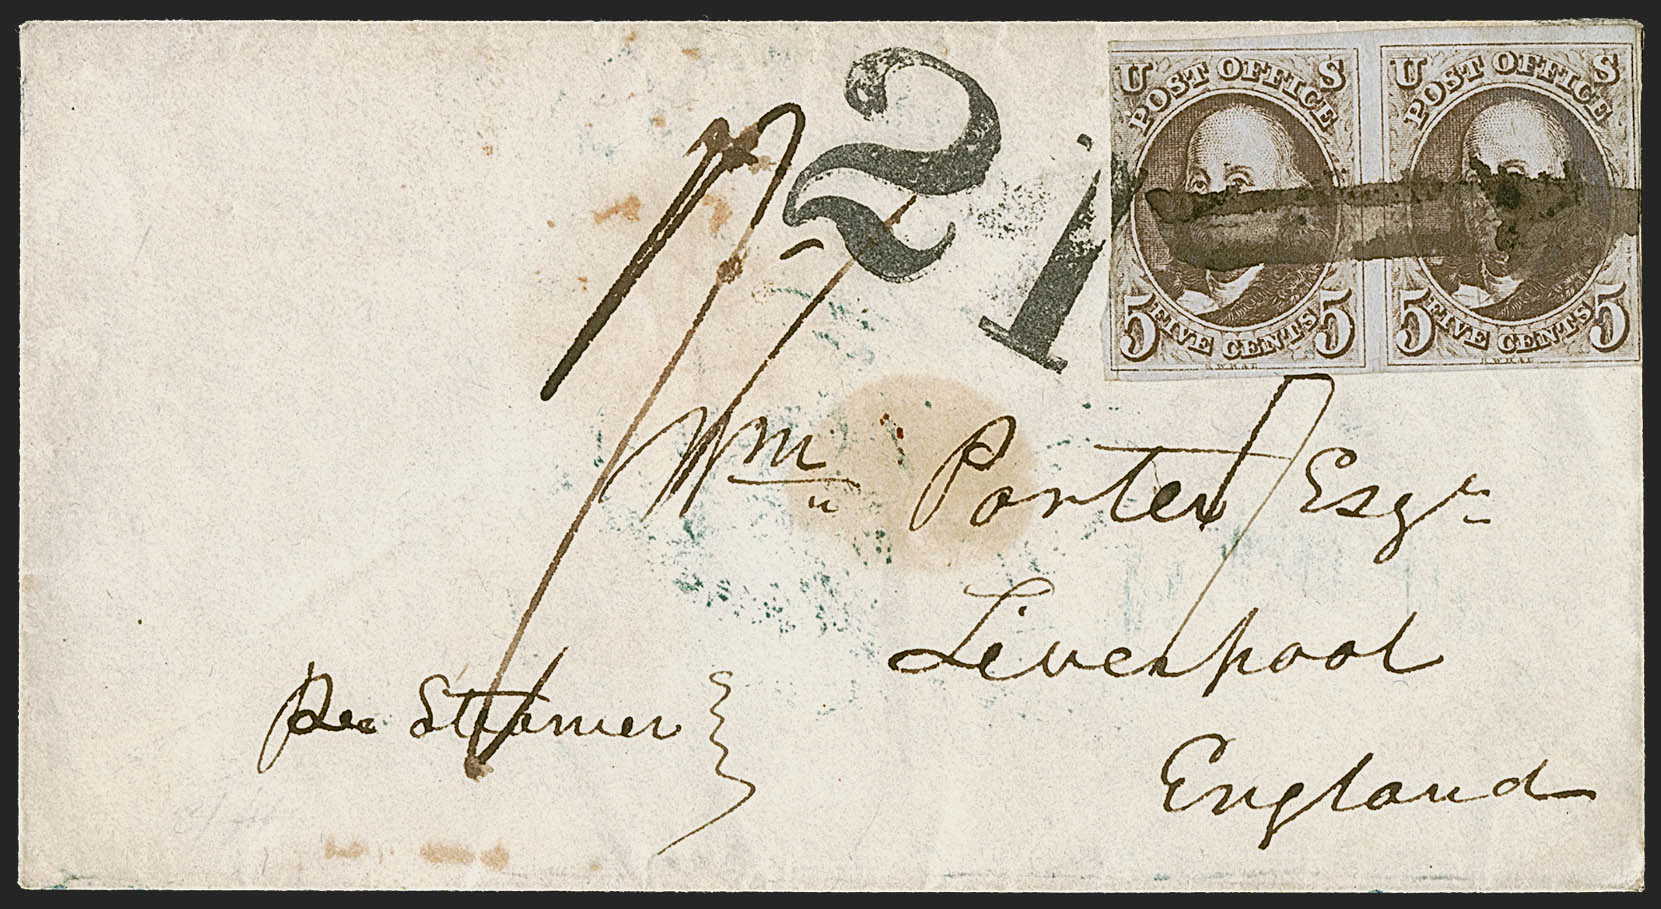 U S U S
POST OFFICE POST OFFICE
5 FIVE CENTS 5 5 FIVE CENTS 5
R.W.H.&E. R.W.H.&E.
21
Wm Porter Esqr
Liverpool
England
Per Steamer